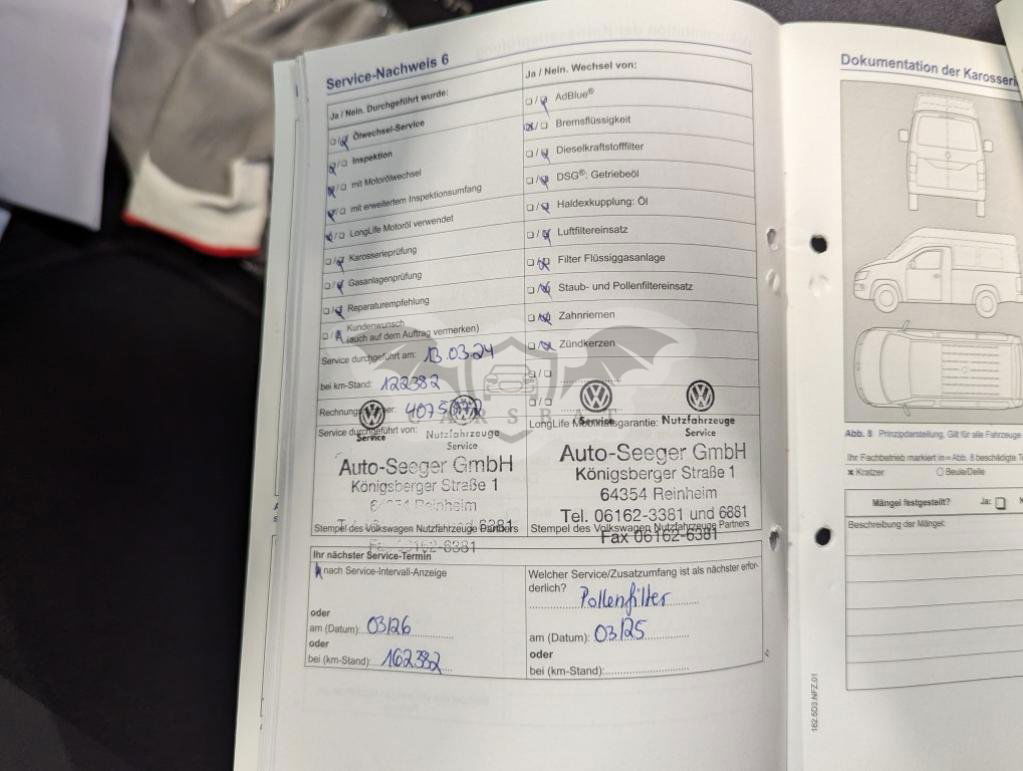 Service-Nachweis 6
Ja / Nein. Durchgeführt wurde:
Ölwechsel-Service
Inspektion
mit Motorölwechsel
mit erweitertem Inspektionsumfang
LongLife Motoröl verwendet
Karosserieprüfung
Gasanlagenprüfung
Reparaturempfehlung
Kundenwunsch
(auch auf dem Auftrag vermerken)
Service durchgeführt am: 13.03.24
bei km-Stand: 122382
Service durchgeführt von:
Nutzfahrzeuge
Service
Service
Auto-Seeger GmbH
Königsberger Straße 1
64354 Reinheim
6881
Stempel des Volkswagen Nutzfahrzeuge Partners
Fax 06162-6381
Ja / Nein. Wechsel von:
AdBlue®
Bremsflüssigkeit
Dieselkraftstofffilter
DSG®: Getriebeöl
Haldexkupplung: Öl
Luftfiltereinsatz
Filter Flüssiggasanlage
Staub- und Pollenfiltereinsatz
Zahnriemen
Zündkerzen
CARSBAT
Service
Nutzfahrzeuge
Service
Auto-Seeger GmbH
Königsberger Straße 1
64354 Reinheim
Tel. 06162-3381 und 6881
Stempel des Volkswagen Nutzfahrzeuge Partners
Fax 06162-6381
Ihr nächster Service-Termin
nach Service-Intervall-Anzeige
oder
am (Datum): 03/26
oder
bei (km-Stand): 162382
Welcher Service/Zusatzumfang ist als nächster erfor-
derlich? Pollenfilter
am (Datum): 03/25
oder
bei (km-Stand):
Dokumentation der
Abb. 8 Prinzipdarstellung. Gilt für alle Fahrzeuge
Ihr Fachbetrieb markiert in ⇒ Abb. 8 beschädigte
× Kratzer
O Beule/Delle
Mängel festgestellt? Ja:
Beschreibung der Mängel:
162.5D3.NFZ.01